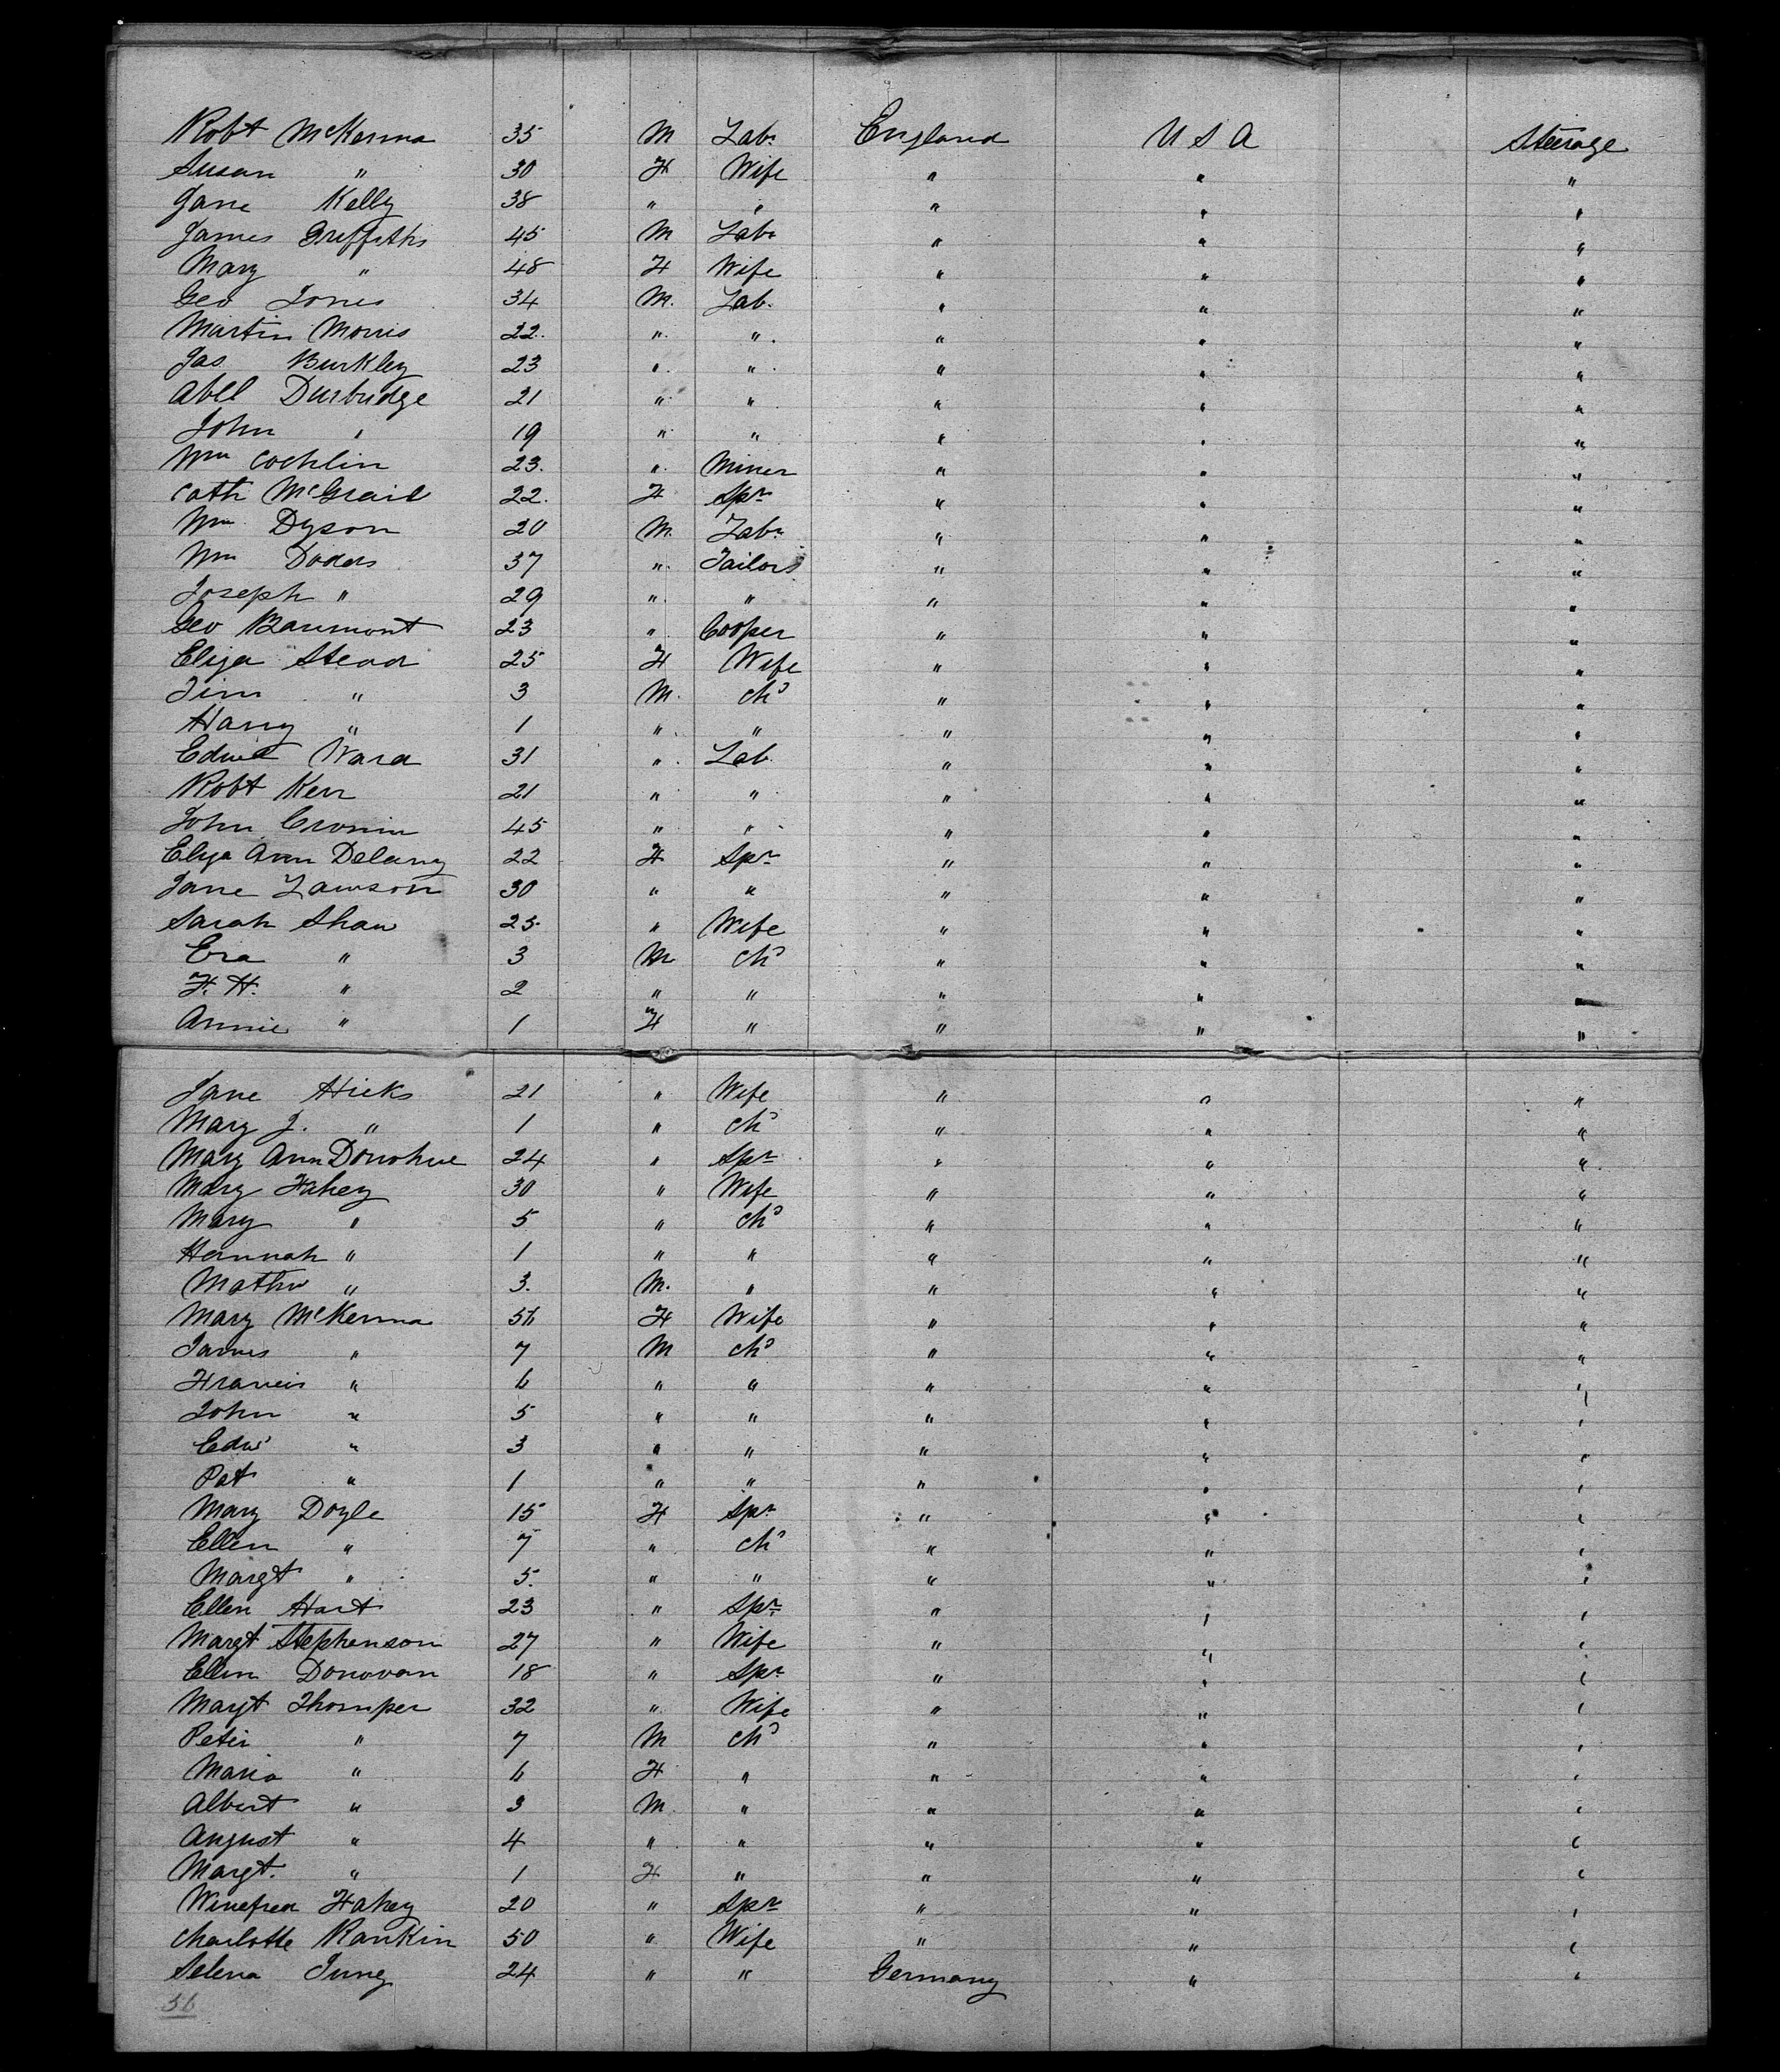 Robt McKenna 35 M Labr England U S A Steerage
Susan " 30 F Wife " " "
Jane Kelly 38 " " " " "
James Griffiths 45 M Labr " " "
Mary " 48 F Wife " " "
Geo Jones 34 M. Lab. " " "
Martin Morris 22. " " " " "
Jas Burkley 23 " " " " "
Abel Durbridge 21 " " " " "
John " 19 " " " " "
Wm Cochlin 23. " Miner " " "
Cath McGrail 22. F Spr " " "
Wm Dyson 20 M. Labr " " "
Wm Dodds 37 " Tailors " " "
Joseph " 29 " " " " "
Geo Baumont 23 " Cooper " " "
Eliza Stead 25 F Wife " " "
Jim " 3 M. Chd " " "
Harry " 1 " " " " "
Edwd Ward 31 " Lab. " " "
Robt Kerr 21 " " " " "
John Cronin 45 " " " " "
Eliza Ann Delany 22 F Spr " " "
Jane Lawson 30 " " " " "
Sarah Shaw 25 " Wife " " "
Era " 3 M Chd " " "
F. H. " 2 " " " " "
Annie " 1 F " " " "
Jane Hicks 21 " Wife " " "
Mary J. " 1 " Chd " " "
Mary Ann Donohue 24 " Spr " " "
Mary Fahey 30 " Wife " " "
Mary " 5 " Chd " " "
Hannah " 1 " " " " "
Mathw " 3. M. " " " "
Mary McKenna 36 F Wife " " "
James " 7 M Chd " " "
Francis " 6 " " " " "
John " 5 " " " " "
Edwd " 3 " " " " "
Pat " 1 " " " " "
Mary Doyle 15 F Spr " " "
Ellen " 7 " Chd " " "
Margt " 5. " " " " "
Ellen Hart 23 " Spr " " "
Margt Stephenson 27 " Wife " " "
Ellen Donovan 18 " Spr " " "
Margt Thomper 32 " Wife " " "
Peter " 7 M Chd " " "
Maria " 6 F " " " "
Albert " 3 M " " " "
August " 4 " " " " "
Margt. " 1 F " " " "
Winefred Fahey 20 " Spr " " "
Charlotte Rankin 50 " Wife " " "
Selena Jung 24 " " Germany " "
56